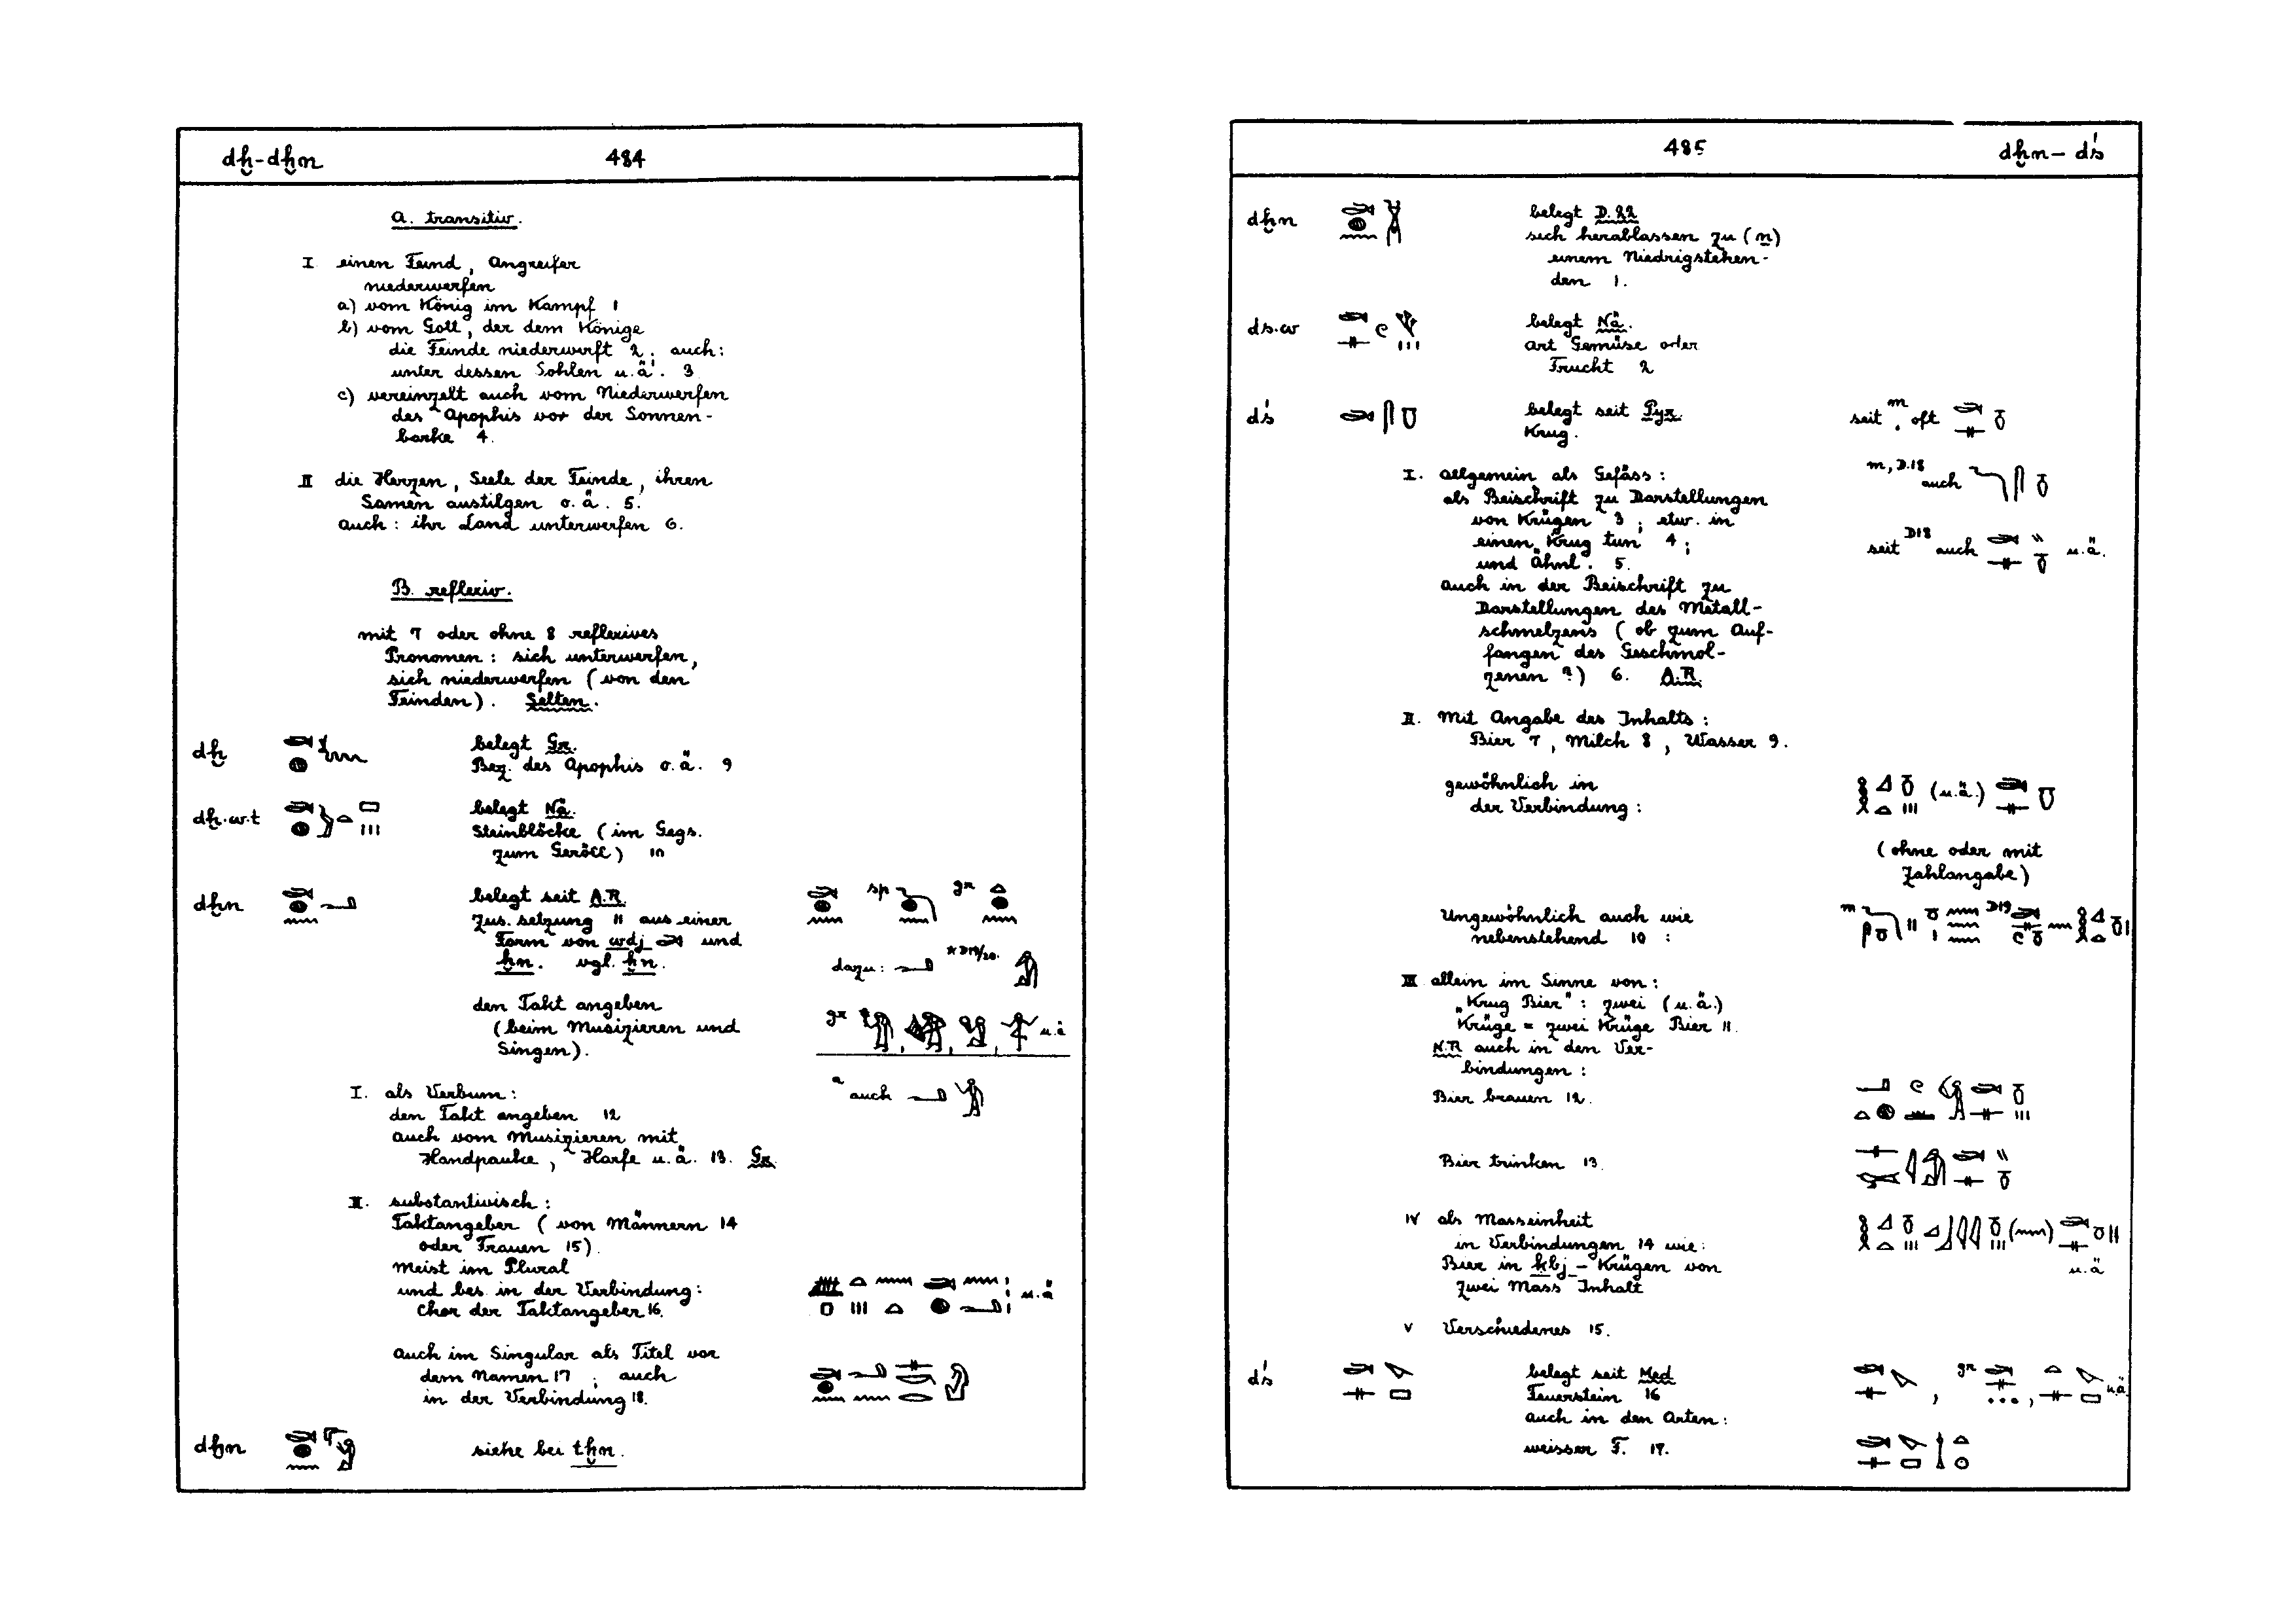 dẖ-dẖn 484
A. transitiv.
I einen Feind, Angreifer
niederwerfen
a) vom König im Kampf 1
b) vom Gott, der dem Könige
die Feinde niederwirft 2; auch:
unter dessen Sohlen u.ä. 3
c) vereinzelt auch vom Niederwerfen
des Apophis vor der Sonnen-
barke 4.
II die Herzen, Seele der Feinde, ihren
Samen austilgen o.ä. 5.
auch: ihr Land unterwerfen 6.
B. reflexiv.
mit 7 oder ohne 8 reflexives
Pronomen: sich unterwerfen,
sich niederwerfen (von den
Feinden). Selten.
dẖ belegt Gr.
Bez. des Apophis o.ä. 9
dẖ.w.t belegt Nä.
Steinblöcke (im Gegs.
zum Geröll) 10
dẖn belegt seit A.R. sp gr
Zus. setzung 11 aus einer
Form von wdj und
ẖn. vgl. ẖn. dazu: *D19/20.
den Takt angeben
(beim Musizieren und gr u.ä
Singen).
I. als Verbum: a auch
den Takt angeben 12
auch vom Musizieren mit
Handpauke, Harfe u.ä. 13. Gr.
II. substantivisch:
Taktangeber (von Männern 14
oder Frauen 15).
Meist im Plural
und bes. in der Verbindung: u.ä
Chor der Taktangeber 16.
auch im Singular als Titel vor
dem Namen 17; auch
in der Verbindung 18.
dẖn siehe bei tẖn.
485 dẖn - dś
dẖn belegt D.22
sich herablassen zu (n)
einem Niedrigstehen-
den 1.
ds.w belegt Nä.
Art Gemüse oder
Frucht 2
dś belegt seit Pyr. seit m. oft
Krug.
I. Allgemein als Gefäss: m, D.18 auch
als Beischrift zu Darstellungen
von Krügen 3; etw. in
einen Krug tun 4; seit D18 auch u.ä.
und Ähnl. 5.
auch in der Beischrift zu
Darstellungen des Metall-
schmelzens (ob zum Auf-
fangen des Geschmol-
zenen?) 6. A.R.
II. Mit Angabe des Inhalts:
Bier 7, Milch 8, Wasser 9.
gewöhnlich in (u.ä.)
der Verbindung:
(ohne oder mit
Zahlangabe)
Ungewöhnlich auch wie m D19
nebenstehend 10:
III allein im Sinne von:
"Krug Bier": zwei (u.ä.)
Krüge = zwei Krüge Bier 11.
N.R auch in den Ver-
bindungen:
Bier brauen 12.
Bier trinken 13.
IV als Masseinheit
in Verbindungen 14 wie:
Bier in ḳbj-Krügen von u.ä
zwei Mass Inhalt
V Verschiedenes 15.
dś belegt seit Med gr u.ä.
Feuerstein 16
auch in den Arten:
weisser F. 17.